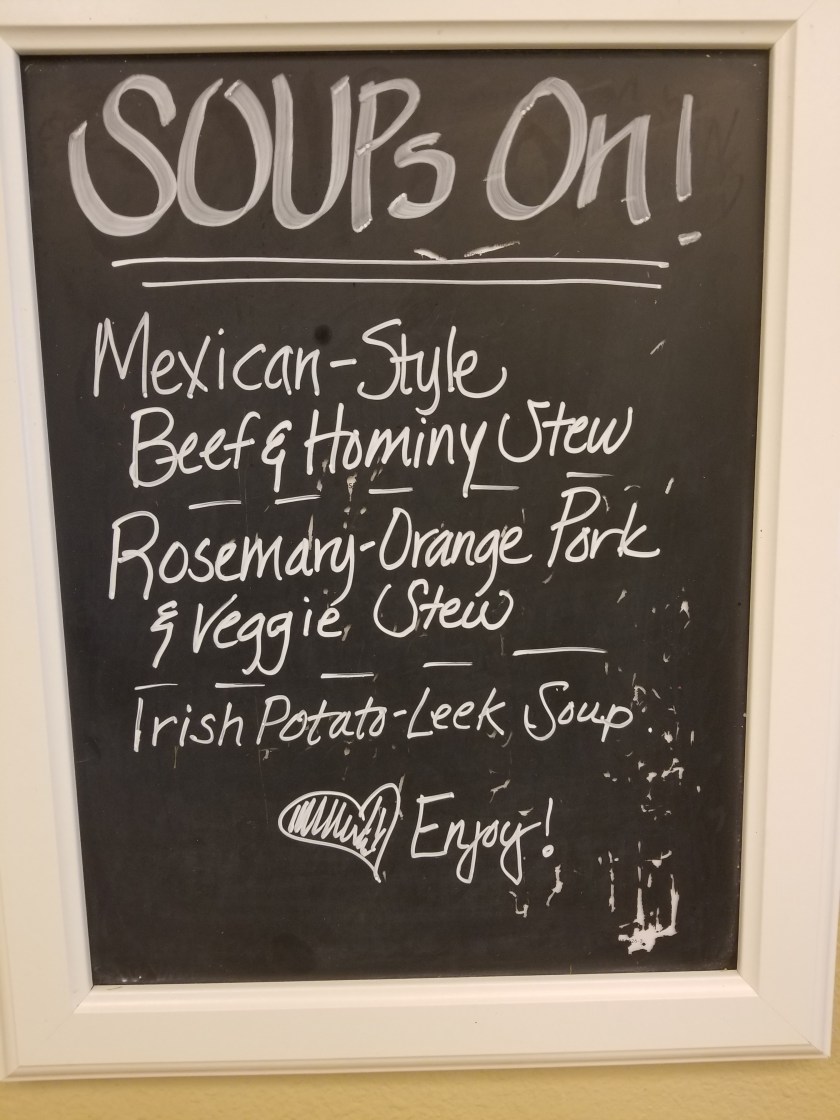 SOUPs On!
Mexican-Style
Beef & Hominy Stew
Rosemary-Orange Pork
& Veggie Stew
Irish Potato-Leek Soup
Enjoy!